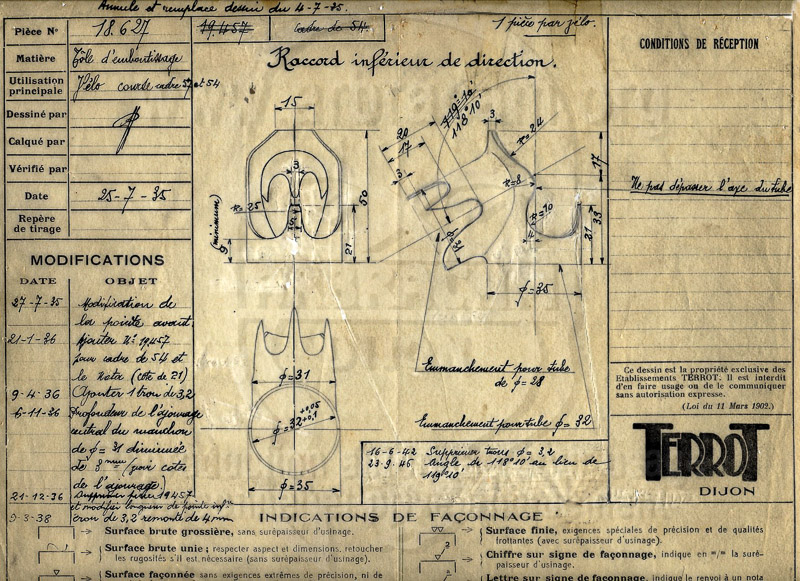 Annule et remplace dessin du 4-7-35.
Pièce Nº 18.627
19.457
cadre de 54.
1 pièce par vélo.
Matière Tôle d'emboutissage
Utilisation principale Vélo course cadre 57 et 54
Dessiné par
Calqué par
Vérifié par
Date 25-7-35
Repère de tirage
MODIFICATIONS
DATE OBJET
27-7-35 Modification de
la pointe avant.
21-1-36 Ajouter Nº 19457
pour cadre de 54 et
le Nota (côte de 21)
9-4-36 Ajouter 1 trou de 3,2
6-11-36 Profondeur de l'ajourage
central du manchon
de ϕ=31 diminuée
de 3mm (voir cotes
de l'ajourage)
21-12-36 Supprimer pièce 19457
et modifier longueur de pointe infre
9-3-38 trou de 3,2 remonté de 4mm
Raccord inférieur de direction.
15
3
r=25
50
21
9
(minimum)
119°10'
118°10'
20
17
3
3
r=24
17
r=8
r=10
21
33
ϕ=35
Emmanchement pour tube
de ϕ=28
Emmanchement pour tube ϕ=32
ϕ=31
ϕ=32 +0,05 +0,1
ϕ=35
16-6-42 Supprimer trou ϕ=3,2
23-9-46 Angle de 118°10' au lieu de
119°10'
CONDITIONS DE RÉCEPTION
Ne pas dépasser l'axe du tube
Ce dessin est la propriété exclusive des
Etablissements TERROT. Il est interdit
d'en faire usage ou de le communiquer
sans autorisation expresse.
(Loi du 11 Mars 1902.)
TERROT
DIJON
INDICATIONS DE FAÇONNAGE
Surface brute grossière, sans surépaisseur d'usinage.
Surface brute unie ; respecter aspect et dimensions, retoucher
les rugosités s'il est nécessaire (sans surépaisseur d'usinage).
Surface façonnée sans exigences extrêmes de précision, ni de
Surface finie, exigences spéciales de précision et de qualités
frottantes (avec surépaisseur d'usinage).
Chiffre sur signe de façonnage, indique en m/m la suré-
paisseur d'usinage.
Lettre sur signe de façonnage, indique le renvoi à un nota